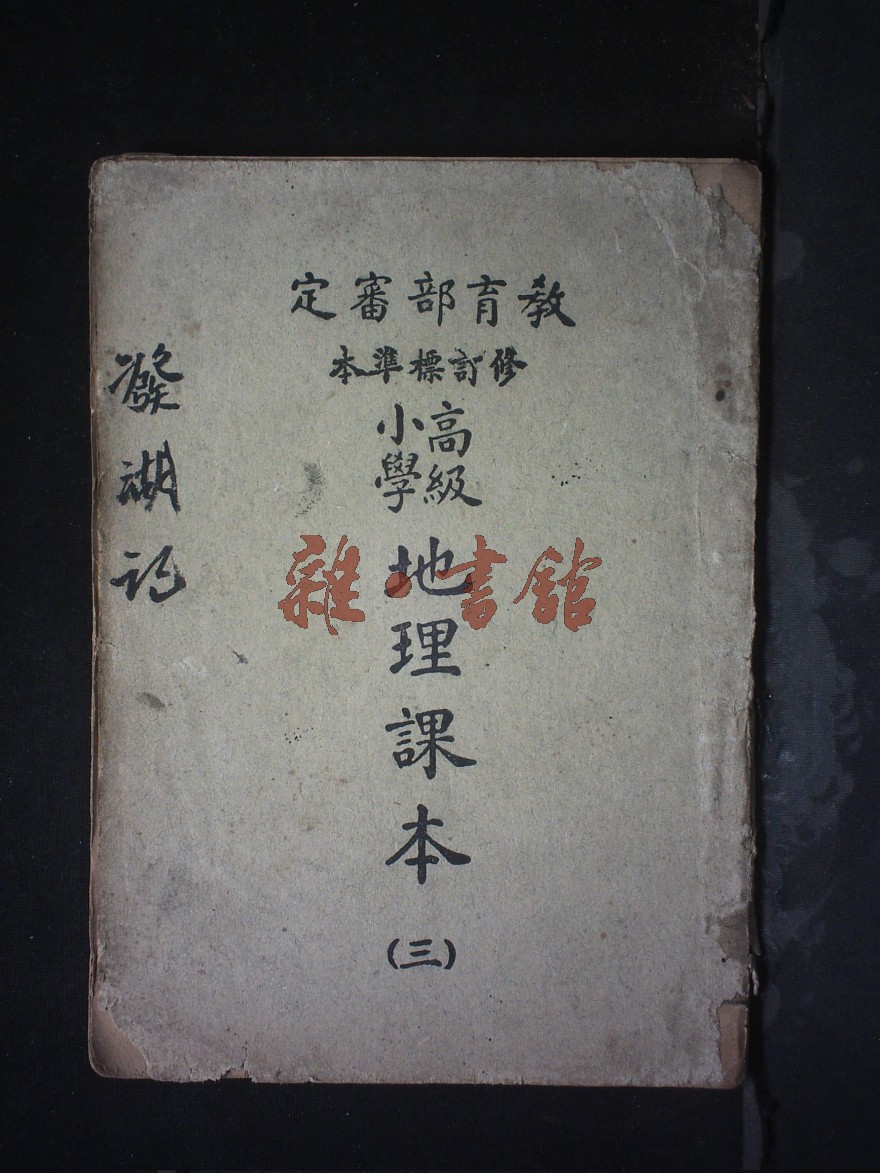 教育部審定
修訂標準本
高級
小學
地理課本
(三)
雜·書館